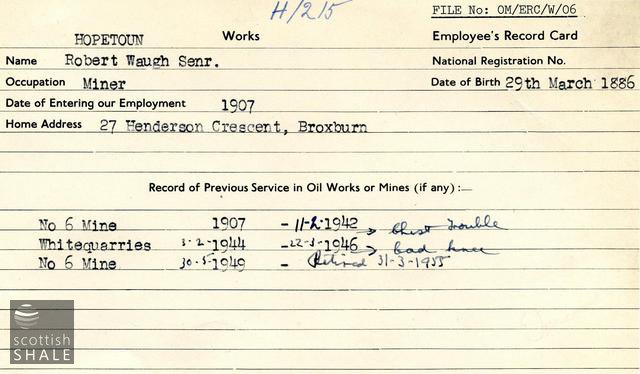 H/215
FILE No: OM/ERC/W/06
HOPETOUN Works Employee's Record Card
Name Robert Waugh Senr. National Registration No.
Occupation Miner Date of Birth 29th March 1886
Date of Entering our Employment 1907
Home Address 27 Henderson Crescent, Broxburn
Record of Previous Service in Oil Works or Mines (if any):—
No 6 Mine 1907 - 11-2-1942 → Chest trouble
Whitequarries 3-2-1944 - 22-3-1946 → bad knee
No 6 Mine 30-5-1949 - Retired 31-3-1955
scottish
SHALE